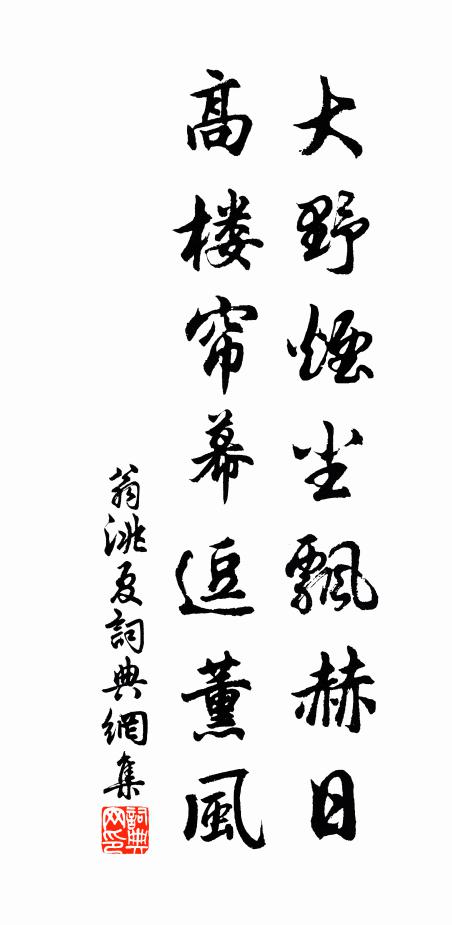 大野煙尘飄赫日
高楼帘幕逗薰風
翁洮夏詞典網集
詞典网印